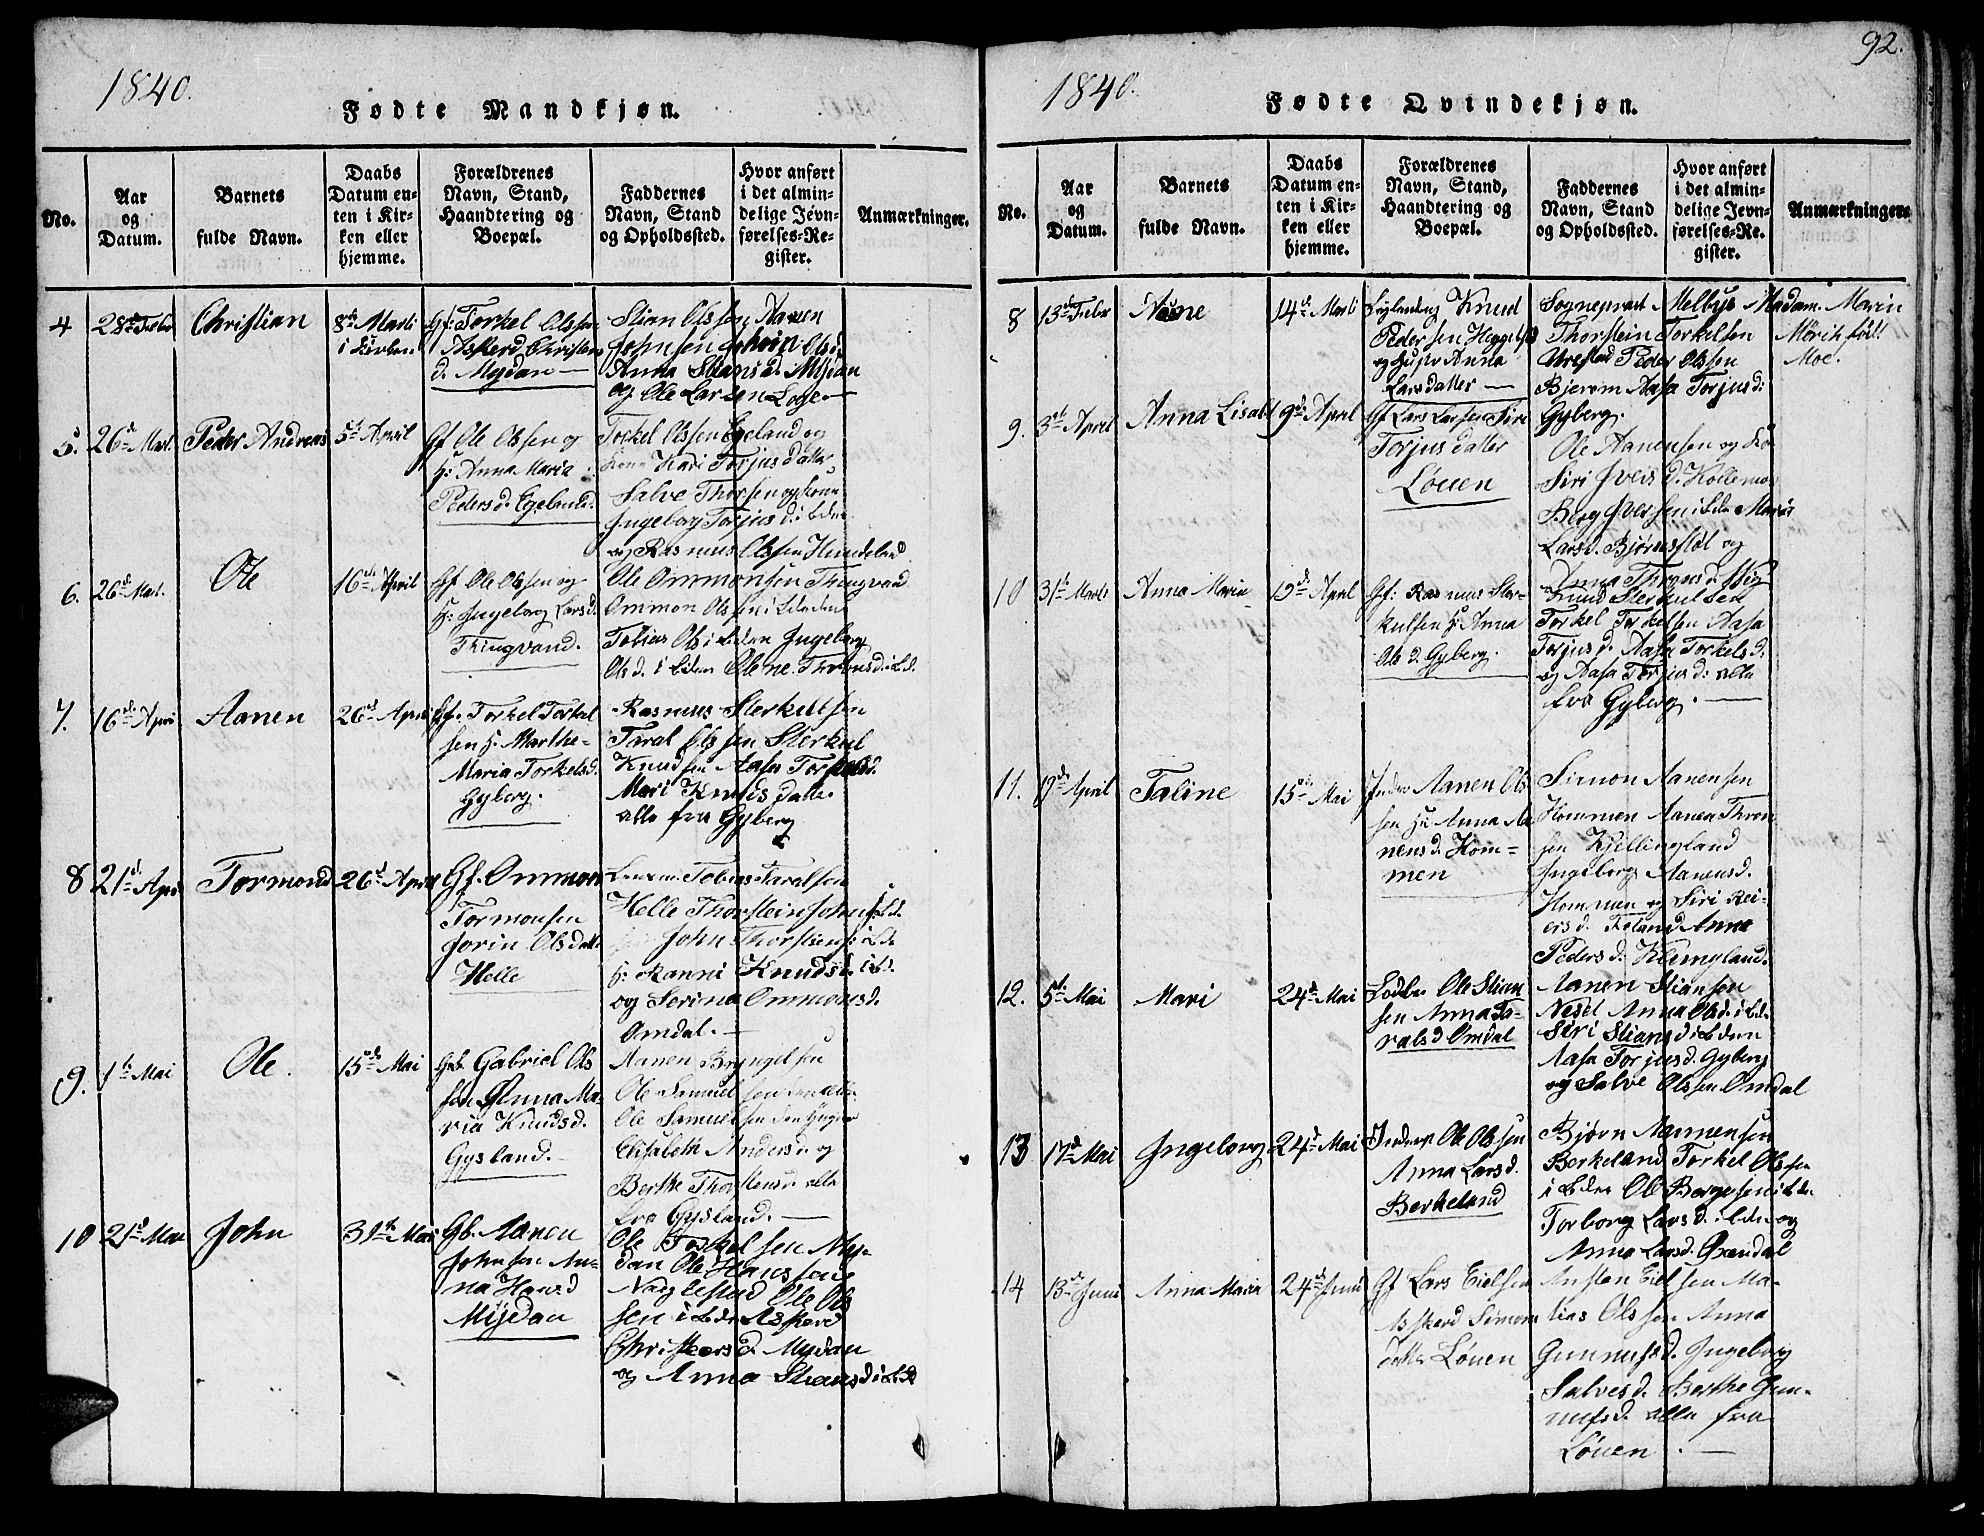 1840.
Fødte Mandkjøn.
No.
Aar og Datum.
Barnets fulde Navn.
Daabs Datum enten i Kirken eller hjemme.
Forældrenes Navn, Stand, Haandtering og Boepæl.
Faddernes Navn, Stand og Opholdssted.
Hvor anført i det almindelige Jevnførelses-Register.
Anmærkninger.
4
28de Febr
Christian
8de Marti
i Kirken
Gf: Torkel Olssen
Askerd Christens
d. Mydan
Stian Olssen Aanen
Johnsen
Anna Stiansd. Mydan
og Ole Larsen Loge
5.
26de Mart.
Peder Andreas
5te April
Gf Ole Olssen og
H: Anna Maria
Pedersd. Egeland.
Torkel Olssen Egeland og
Kone Kari Torjusdatter
Salve Thorsen og Kone
Ingeborg Torjusd. ibdm
og Rasmus Olssen Hundeland
6.
26de Mart.
Ole
16de April
Gf Ole Olssen og
H: Ingeborg Larsd.
Tingvand.
Ole Ommonsen Tingvand
Ommon Olssen ibidem
Tobias Ols ibidem Ingeborg
Olsd. ibidem Olene Thronsd. ibd.
7.
16de April
Aanen
26de April
Gf. Torkel Torkel
sen H. Marthe
Maria Torkelsd.
Gyberg.
Rasmus Sterkulsen
Taral Olssen Sterkul
Knudsen Aasa Torjusd.
Mari Knudsdatter
alle fra Gyberg
8
21de April
Tormond
26de April
Gf. Ommon
Tormonsen
Jorin Olsdatter
Helle
Tobias Taralsen
Helle Thorstein Johns ibd.
John Thorstens ibd
H: Ranni Knudsd. ibd.
og Serina Ommonsd.
Omdal.
9.
1te Mai
Ole.
15de Mai
Gb. Gabriel Ols
sen Anna Ma-
ria Knudsd.
Gysland.
Aanen Bryngelsen
Ole Samuelsen den ældre
Ole Samuelsen den yngre
Elisabeth Andersd. og
Berthe Thorstensd. alle
fra Gysland.
10
21de Mai
John
31te Mai
Gb. Aanen
Johnsen An-
na Hansd
Mijdan
Ole Torkelsen My-
dan Ole Hanssen
Naglestad Ole Ols
sen ibdm Askerd
Christensd. Mydan
og Anna Stiansd ibd
92.
1840.
Fødte Qvindekjøn.
No.
Aar og Datum.
Barnets fulde Navn.
Daabs Datum enten i Kirken eller hjemme.
Forældrenes Navn, Stand, Haandtering og Boepæl.
Faddernes Navn, Stand og Opholdssted.
Hvor anført i det almindelige Jevnførelses-Register.
Anmærkninger.
8
13de Febr
14de Marti
Knud
Pedersen
og Hustr Anna
Larsdatter
Sogneprest Melbye Madam Marin
Thorstein Torkelsen
Peder Olssen
Bjerom Aasa Torjusd.
Gyberg.
Mørch født
Moe.
9.
3de April
Anna Lisabet
9de April
Gf Lars Larsen Siri
Torjusdatter
Løuen
Ole Aanensen og Ko
Siri Iveisd. Kollemo
Berg Iversen ibdm Maris
Larsd. Bjørnstøl og
Anna Thronsd. Mög
10
31te Marts
Anna Maria
19de April
Gf: Rasmus Ster-
kulsen H: Anna
Olsd. Gyberg.
Knud Sterkulsen
Torkel Torkelsen Aasa
Torjusd. Aasa Torkelsd.
og Aasa Torjusd. alle
fra Gyberg.
11.
9de April
Taline
15de Mai
Inder Aanen Ols
sen Hu Anna Aa
nensd. Hom-
men
Simon Aanensen
Hommen Aanen Thron
sen Kjellingland
Ingeborg Aanensd.
Hommen og Siri Rei-
ersd. Feland Anna
Pedersd. Klungland.
12.
5te Mai
Mari
24de Mai
Ole Stian
sen Anna Ta-
ralsd Omdal
Aanen Stiansen
Nesel Anna Olsd. ibd.
Siri Stiansd ibdem
Aasa Torjusd. Gyberg
og Salve Olssen Omdal
13
17de Mai
Ingeborg
24de Mai
Inderst Ole Olssen
Anna Larsd.
Berkeland
Bjørn Aannensen
Berkeland Torkel Olssen
ibdm Ole Bergesen ibdm
Torborg Larsd. ibdm og
Anna Larsd. Grendal
14
13de Juni
Anna Maria
24de Juni
Gf Lars Eielsen
Askerd Simons
datter Løuen
Ansten Eielsen Ma-
tias Olssen Anna
Gunnufsd. Ingeborg
Salvesd. Berthe Gun-
nufsd. alle fra
Løuen.